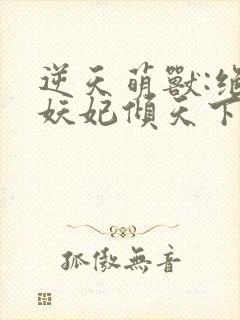 逆天萌獸:絕
妖妃傾天下
孤傲無音